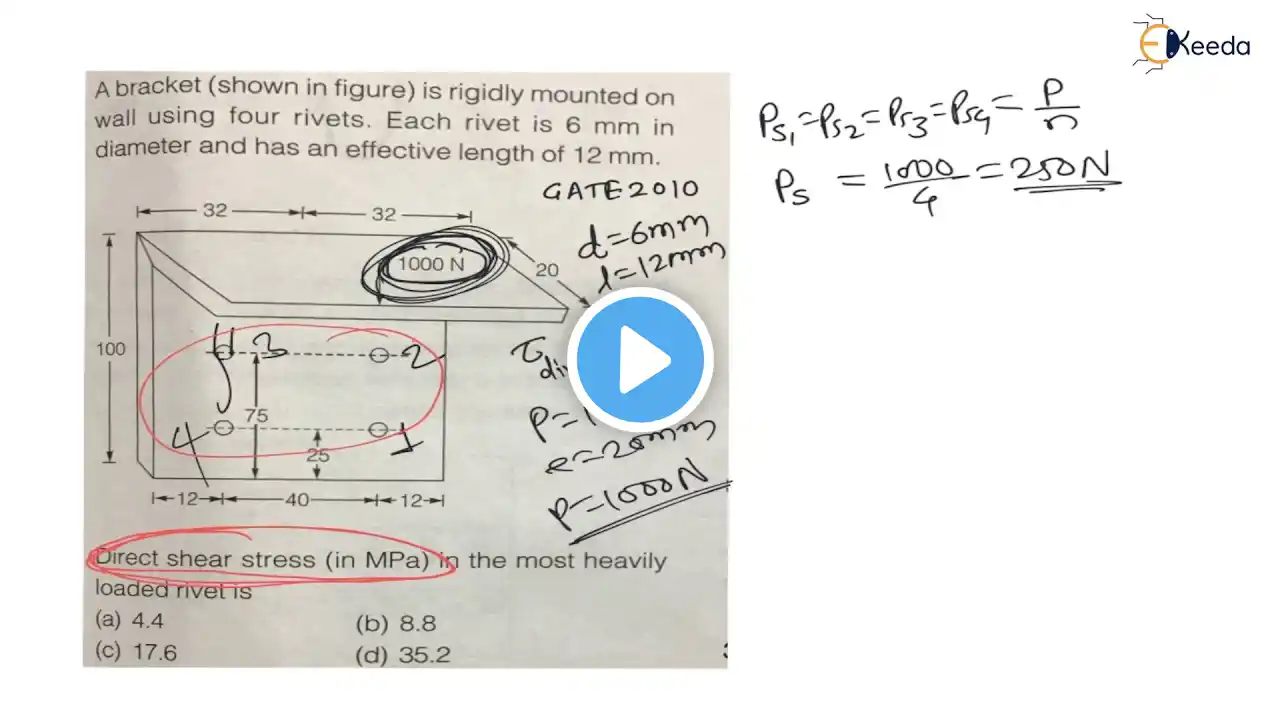 EKeeda
A bracket (shown in figure) is rigidly mounted on
wall using four rivets. Each rivet is 6 mm in
diameter and has an effective length of 12 mm.
GATE 2010
32
32
d=6mm
l=12mm
1000 N
20
100
3
2
75
P=1
4
1
25
e=20mm
P=1000N
12
40
12
Direct shear stress (in MPa) in the most heavily
loaded rivet is
(a) 4.4
(b) 8.8
(c) 17.6
(d) 35.2
Ps1=Ps2=Ps3=Ps4=P/n
Ps = 1000/4 = 250N